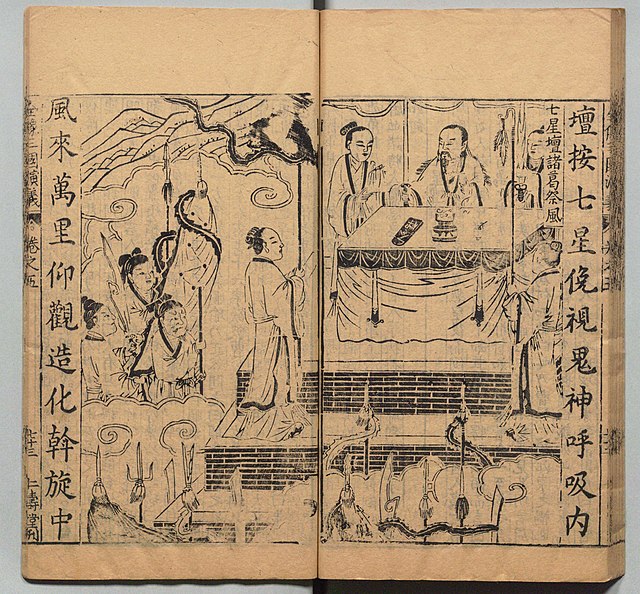 壇按七星俛視鬼神呼吸内
七星壇諸葛祭風
風來萬里仰觀造化斡旋中
三國演義
卷之五
仁壽堂刊